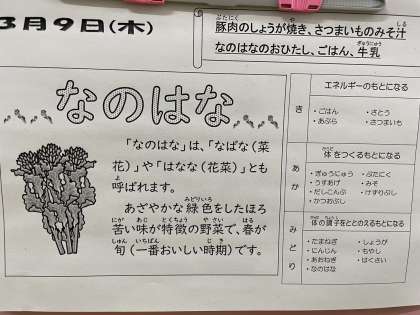 3月9日(木)
豚肉のしょうが焼き、さつまいものみそ汁
なのはなのおひたし、ごはん、牛乳
なのはな
「なのはな」は、「なばな(菜
花)」や「はなな(花菜)」とも
呼ばれます。
あざやかな緑色をしたほろ
苦い味が特徴の野菜で、春が
旬(一番おいしい時期)です。
き
エネルギーのもとになる
・ごはん ・さとう
・あぶら ・さつまいも
あか
体をつくるもとになる
・ぎゅうにゅう ・ぶたにく
・うすあげ ・みそ
・だしこんぶ ・けずりぶし
・かつおぶし
みどり
体の調子をととのえるもとになる
・たまねぎ ・しょうが
・にんじん ・もやし
・あおねぎ ・はくさい
・なのはな